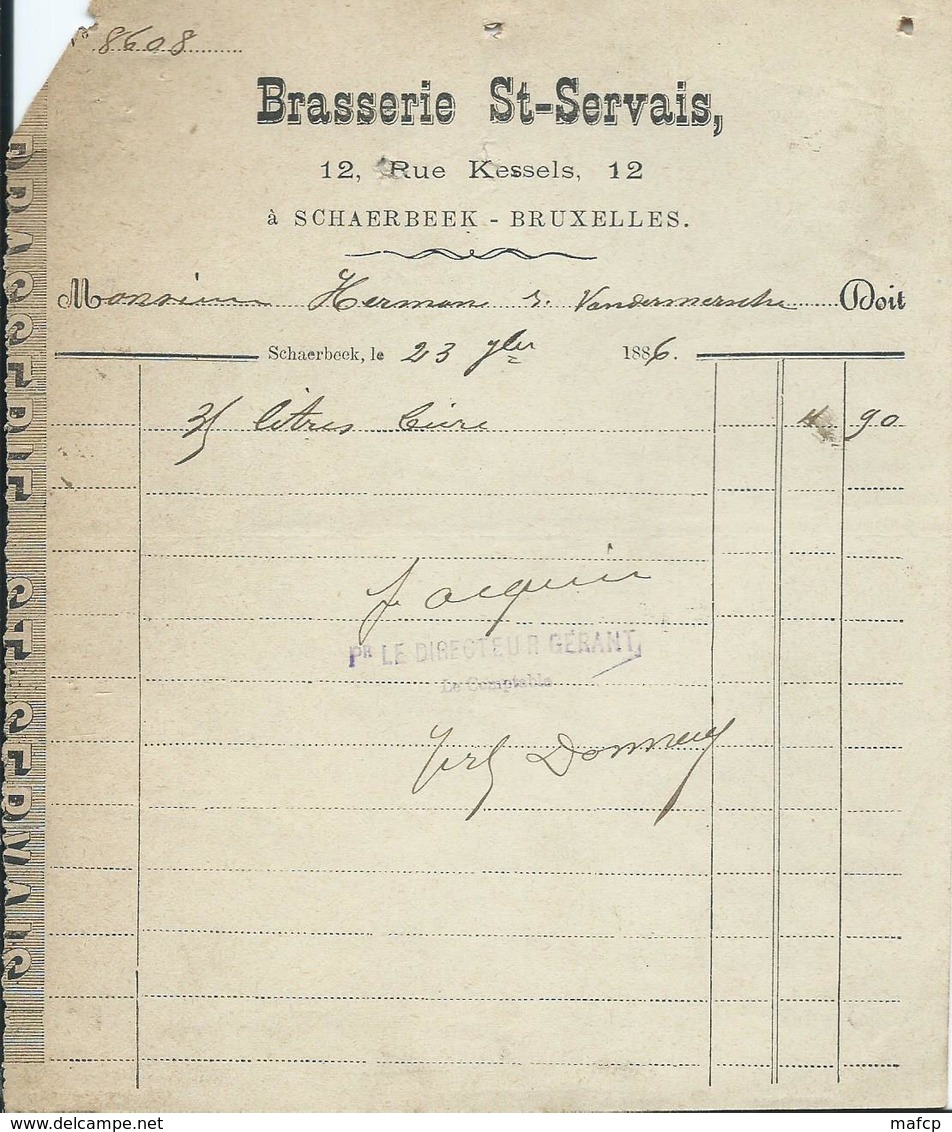 N° 8608
Brasserie St-Servais,
12, Rue Kessels, 12
à SCHAERBEEK - BRUXELLES.
Monsieur Hermans r. Vandermersche Doit
Schaerbeek, le 23 1886.
35 litres bière 4 90
Jacquin
PR LE DIRECTEUR GÉRANT,
Le Comptable
Donnay
BRASSERIE ST-SERVAIS
mafcp